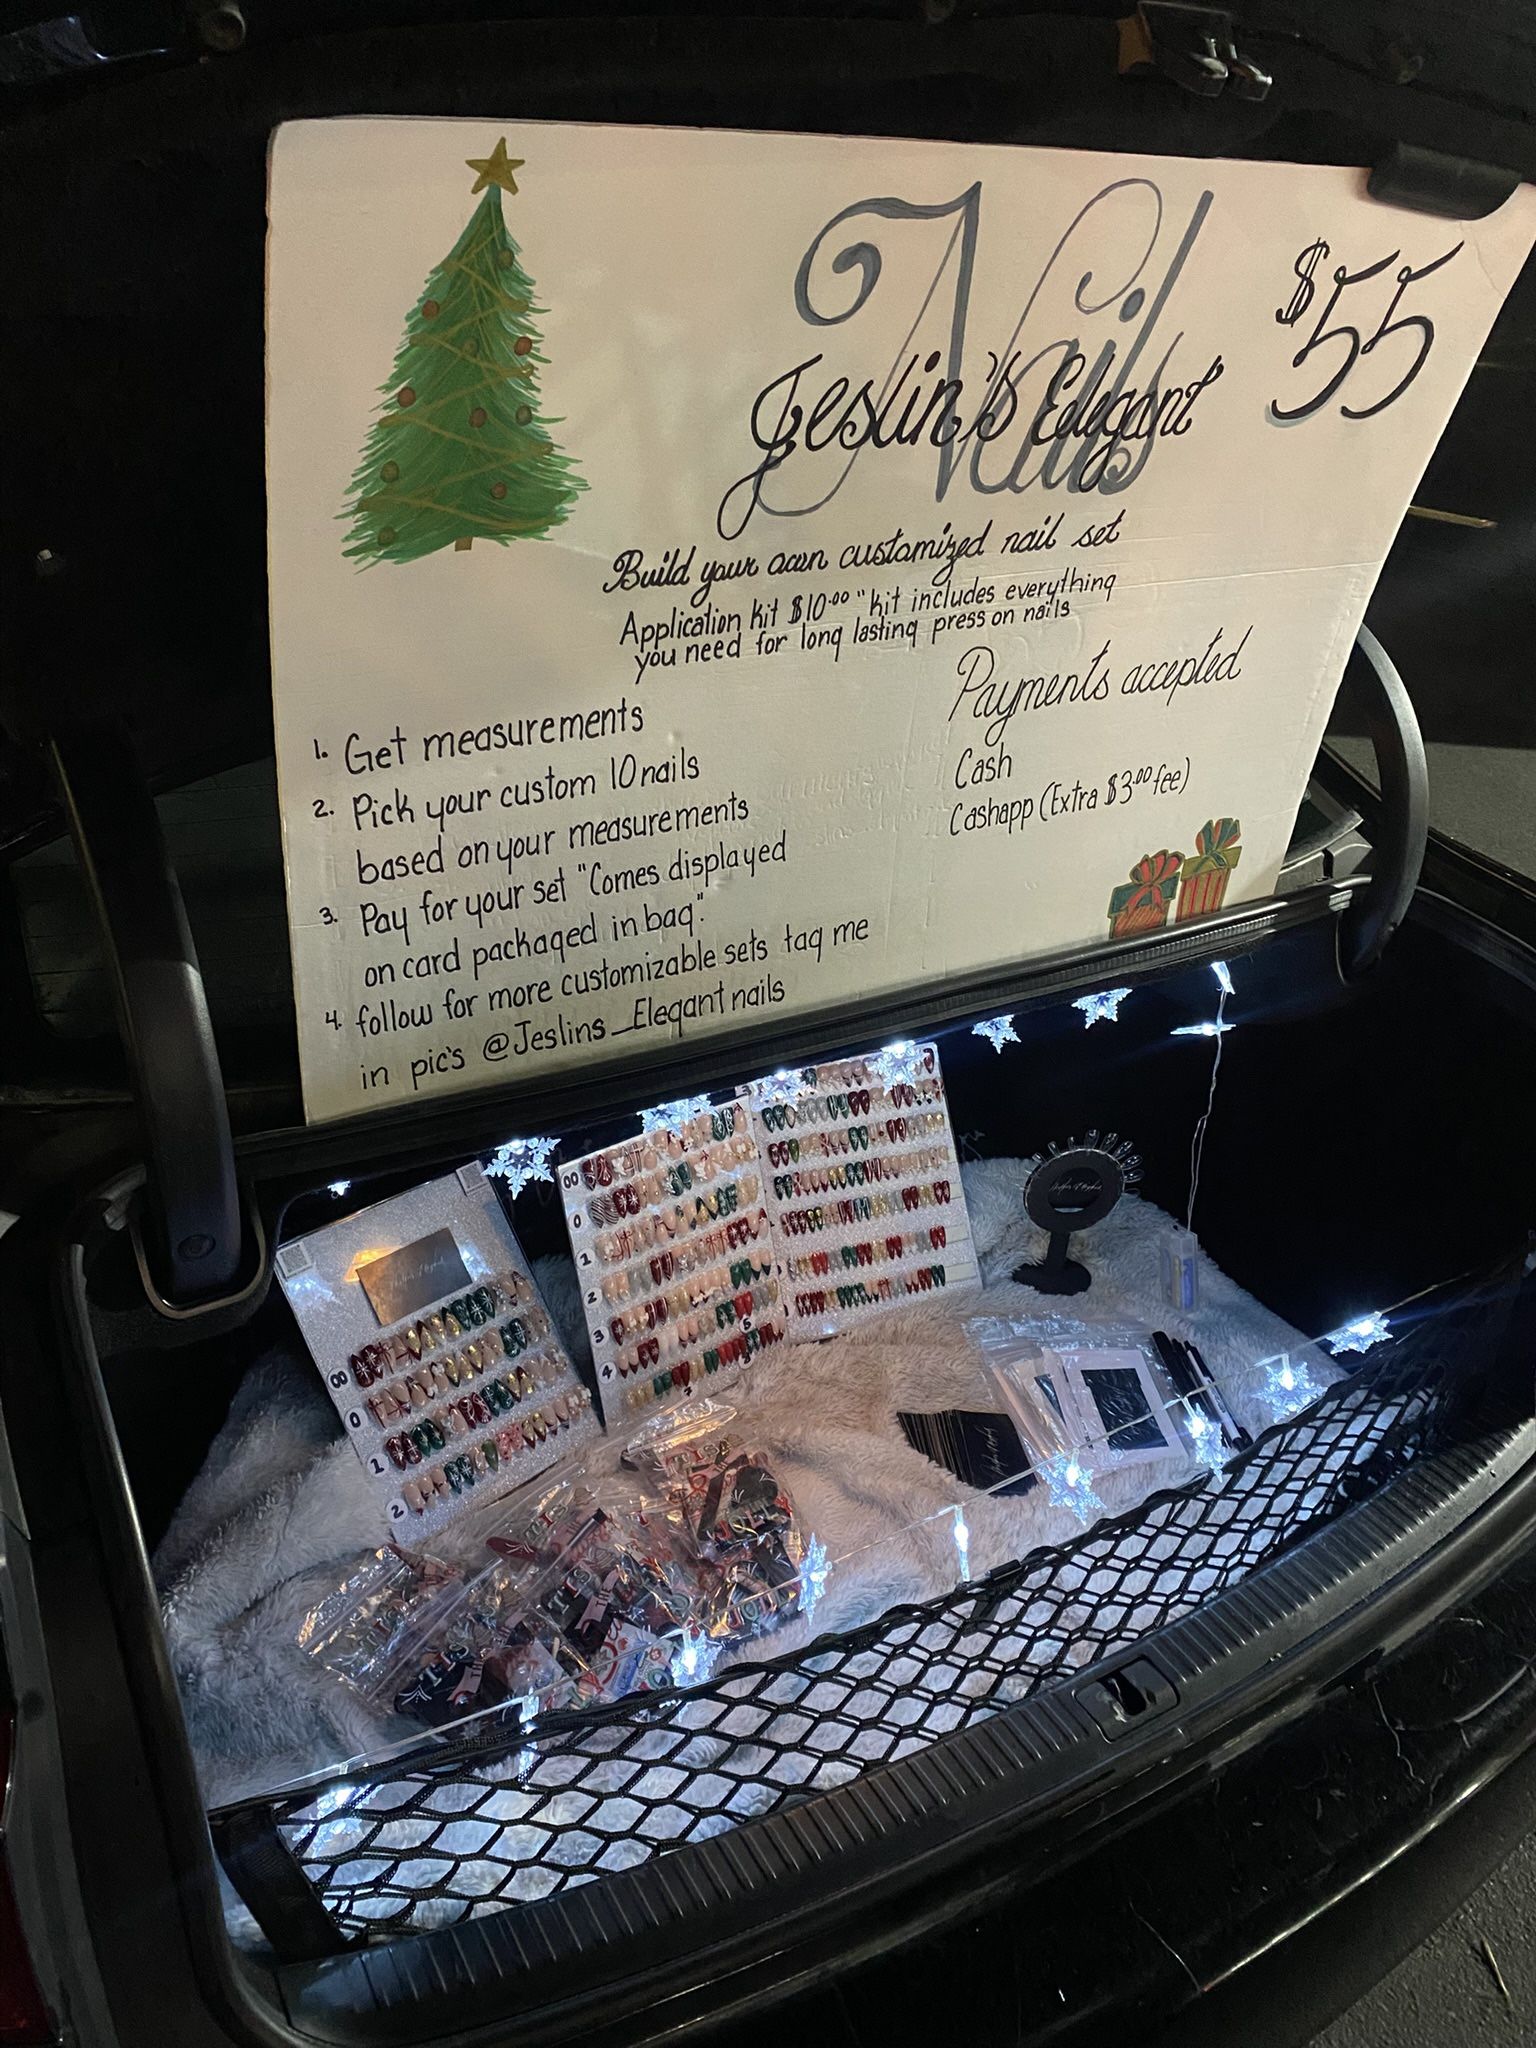 Nails
Jeslin's Elegant
$55
Build your own customized nail set
Application kit $10.00 "kit includes everything
you need for long lasting press on nails
1. Get measurements
2. Pick your custom 10 nails
based on your measurements
3. Pay for your set "Comes displayed
on card packaged in bag".
4. follow for more customizable sets tag me
in pic's @Jeslins_Elegantnails
Payments accepted
Cash
Cashapp (Extra $3.00 fee)
00
0
1
2
00
0
1
2
3
4
'TIS
THE
'TIS
THE